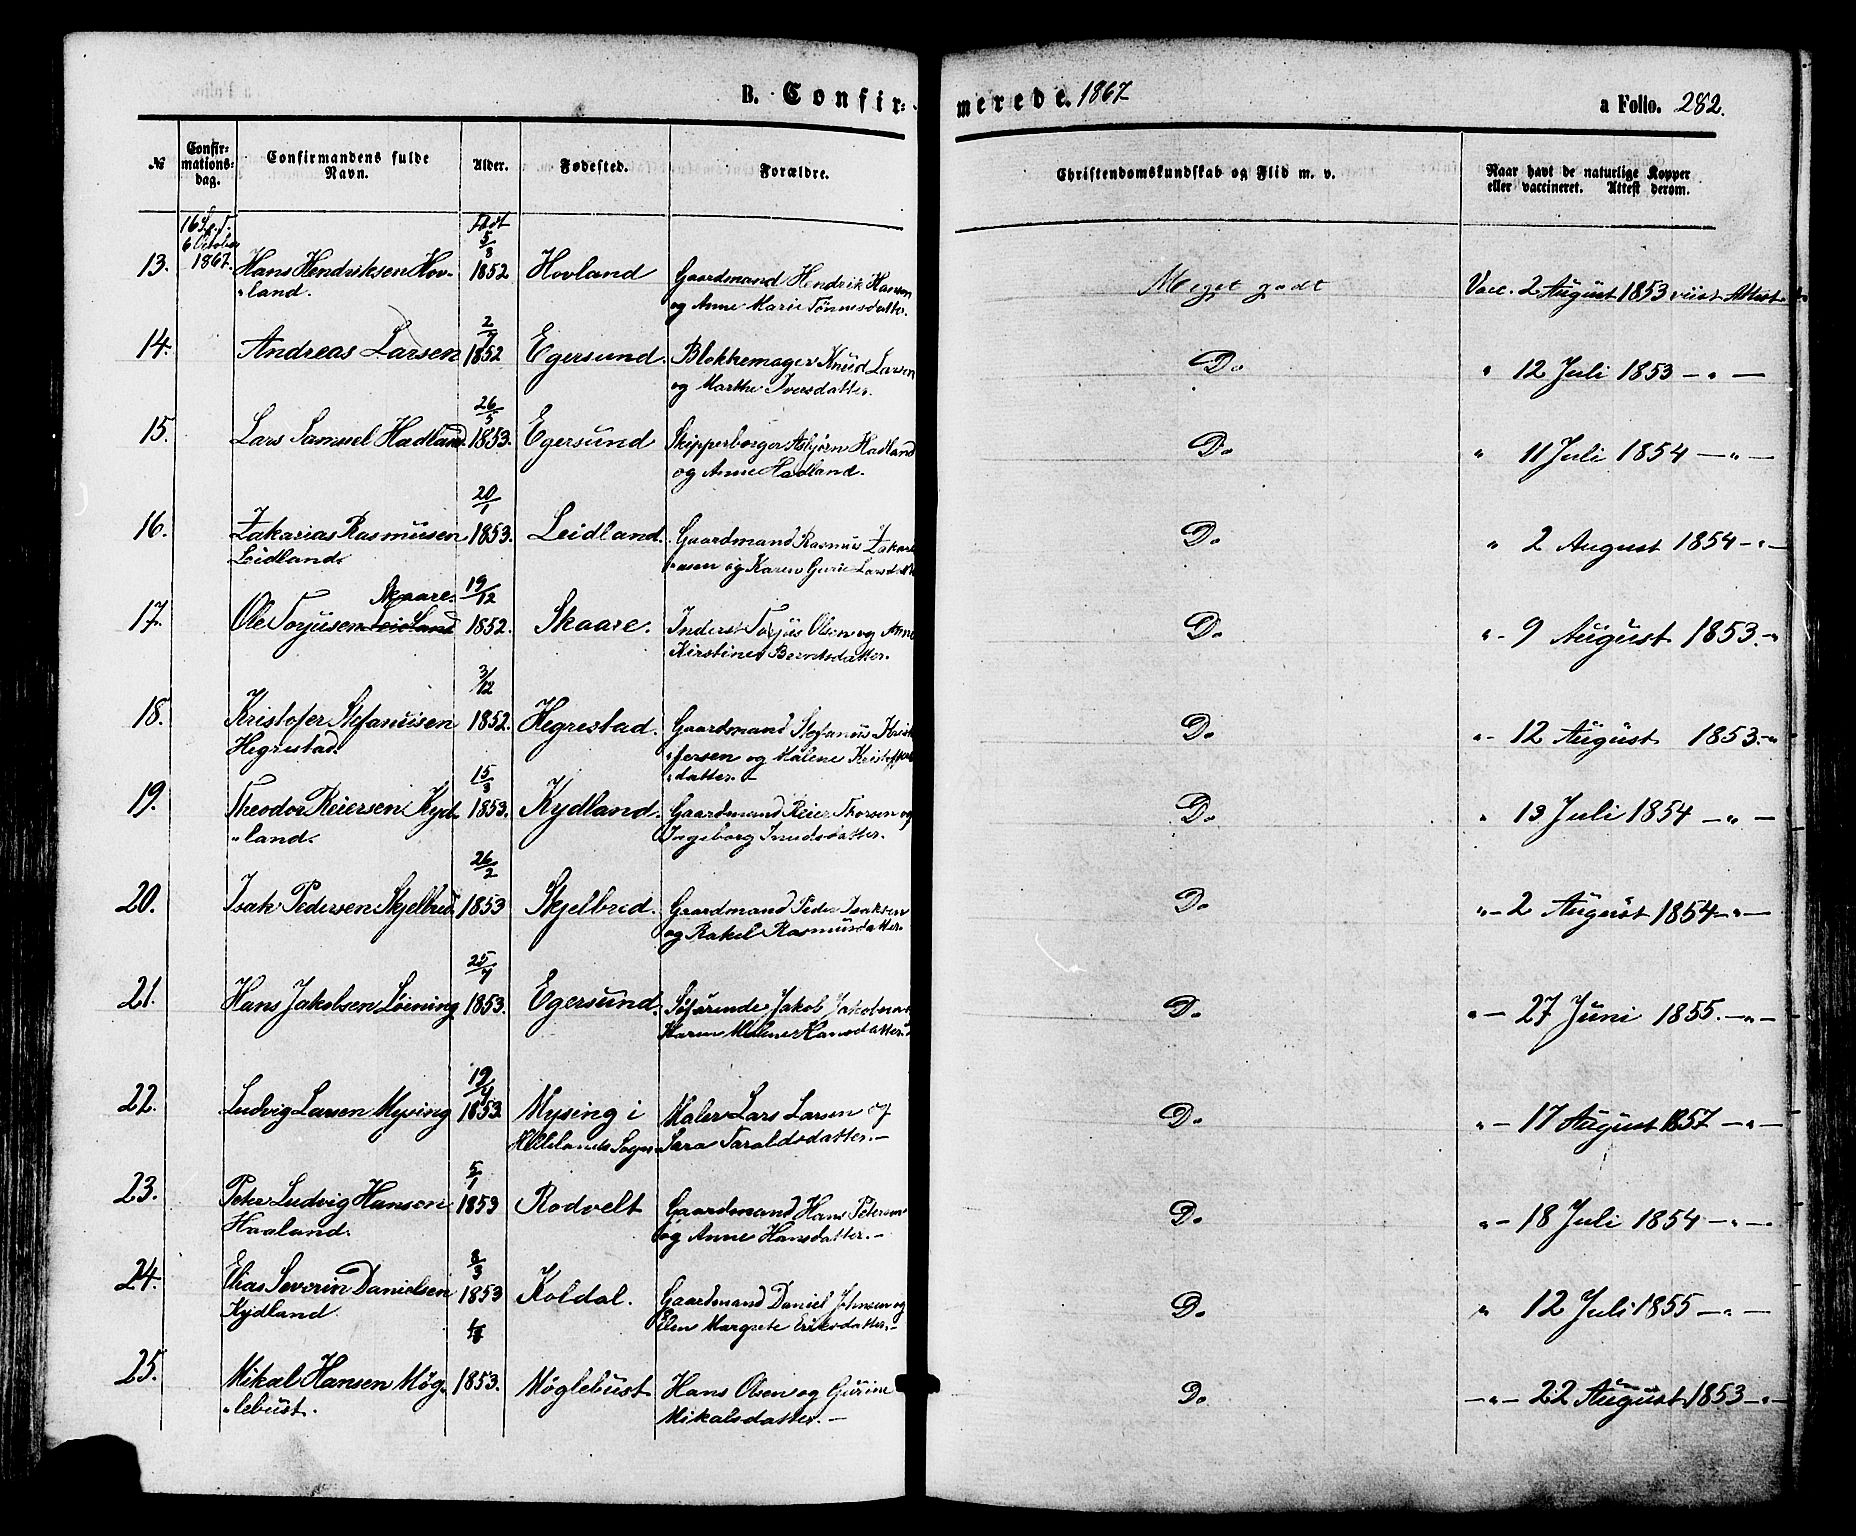 B. Confir-merede. 1867 a Folio. 282.
№ Confir-mations-dag. Confirmandens fulde Navn. Alder. Fødested. Forældre. Christendomskundskab og Flid m. v. Naar havt de naturlige Kopper eller vaccineret. Attest derom.
6 October
1867.
Født
5/8
13. Hans Hendriksen Hov- 1852 Hovland Gaardmand Hendrik Hansen Meget godt Vacc. 2 August 1853 viist Attest
"land. og Anne Marie Tönnesdatter.
14. Andreas Larsen 1852 Egersund. Blokkemager Knud Larsen Do " 12 Juli 1853 — " —
og Marthe Iversdatter.
26/5
15. Lars Samuel Hadland. 1853. Egersund Skipperborger Asbjörn Hadland Do " 11 Juli 1854 — " —
og Anne Hadland.
20/1
16. Zakarias Rasmusen 1853. Leidland. Gaardmand Rasmus Zakari- Do " 2 August 1854 — " —
Leidland. "asen og Karen Gurie Larsdatter
Skaare. 19/12
17. Ole Torjusen Leidland 1852. Skaare. Inderst Torjus Olsen og Anne Do " - 9 August 1853. - "
Kirstine Berntsdatter.
3/12
18. Kristofer Stefanusen 1852. Hegrestad. Gaardmand Stefanus Krist- Do " - 12 August 1853. - "
Hegrestad. "fersen og Malene Kristoffers-
"datter. —
15/3
19. Theodor Reiersen Kyd- 1853. Kydland. Gaardmand Reier Thorsen og Do " 13 Juli 1854 — " —
"land. Ingeborg Knudsdatter.
26/2
20. Isak Pedersen Skjelbred. 1853 Skjelbred. Gaardmand Peder Isaksen Do " - 2 August 1854 — " —
og Rakel Rasmusdatter.
25/4
21. Hans Jakobsen Löining 1853. Egersund. Söfarende Jakob Jakobsen Do " - 27 Juni 1855. — " —
Karen Malene Hansdatter.
19/4
22. Ludvig Larsen Mysing 1853. Mysing i Maler Lars Larsen og Do " - 17 August 1857 — " —
Hellelands Sogn. Sara Taraldsdatter. —
5/1
23. Peter Ludvig Hansen 1853 Rodvelt Gaardmand Hans Petersen Do " - 18 Juli 1854 — " —
Haaland. og Anne Hansdatter. —
8/3
24. Elias Severin Danielsen 1853 Koldal. Gaardmand Daniel Johnsen og Do " 12 Juli 1855 — " —
Kydland. Elen Margrete Eriksdatter. —
25. Mikal Hansen Mög- 1853. Möglebust Hans Olsen og Gurine Do — " - 22 August 1853 — " —
"lebust. Mikalsdatter. —